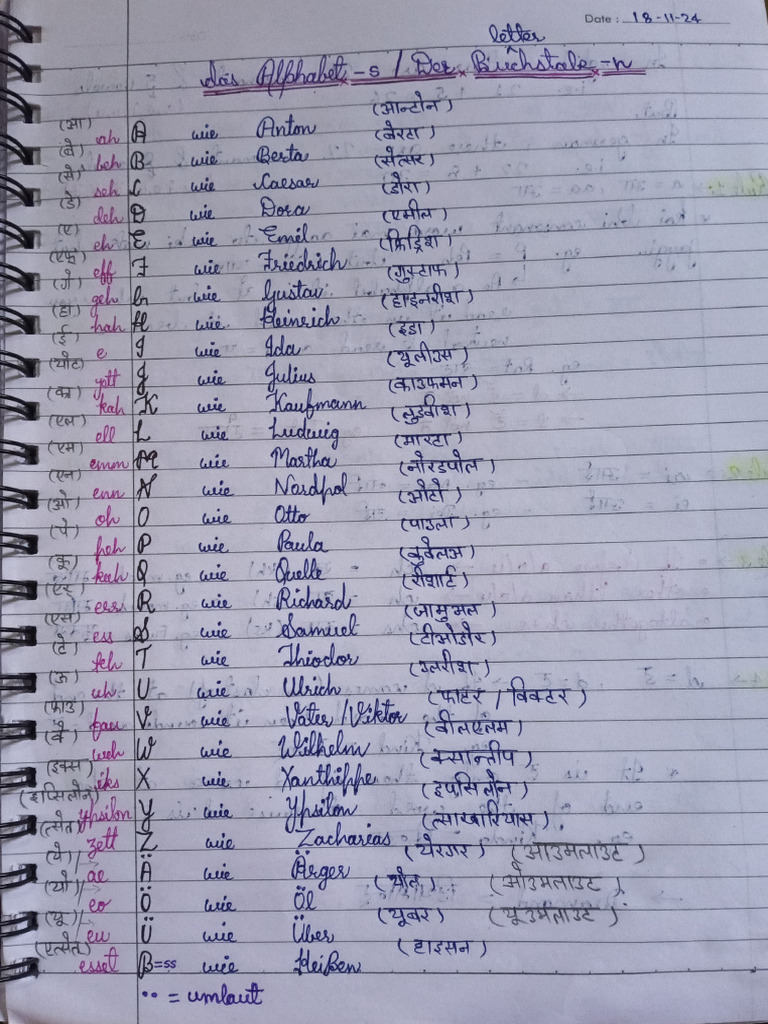 Date : 18-11-24
letter
das Alphabet -s / Der Buchstabe -n
(आ) ah A wie Anton (आन्टोन)
(बे) beh B wie Berta (बेरटा)
(से) seh C wie Caesar (सेत्सर)
(डे) deh D wie Dora (डोरा)
(ए) eh E wie Emil (एमील)
(एफ) eff F wie Friedrich (फ्रिड्रिश)
(गे) geh G wie Gustav (गुस्टाफ)
(हा) hah H wie Heinrich (हाइनरीश)
(ई) e I wie Ida (इडा)
(योट) yott J wie Julius (यूलीउस)
(का) kah K wie Kaufmann (काउफमन)
(एल) ell L wie Ludwig (लुडवीश)
(एम) emm M wie Martha (मारटा)
(एन) enn N wie Nordpol (नोरडपोल)
(ओ) oh O wie Otto (ओटो)
(पे) peh P wie Paula (पाउला)
(कू) kuh Q wie Quelle (कुवेलअ)
(एर) err R wie Richard (रीशार्ट)
(एस) ess S wie Samuel (जामुमल)
(टे) teh T wie Thiodor (टीओडोर)
(ऊ) uh U wie Ulrich (उलरीश)
(फाउ) fau V wie Vater / Viktor (फाटर / विक्टर)
(वे) weh W wie Wilhelm (वीलएलम)
(इक्स) iks X wie Xanthippe (क्सान्तीप)
(इप्सिलोन) ypsilon Y wie Ypsilon (इप्सिलोन)
(त्सेत) zett Z wie Zacharias (त्साखारियास)
(ये) ae Ä wie Ärger (येरगर) (आउमलाउट)
(यो) eo Ö wie Öl (योल) (ओउमलाउट)
(यू) eu Ü wie Über (यूबर) (यूउमलाउट)
(एत्सेत) esset ß=ss wie Heißen (हाइसन)
¨ = umlaut